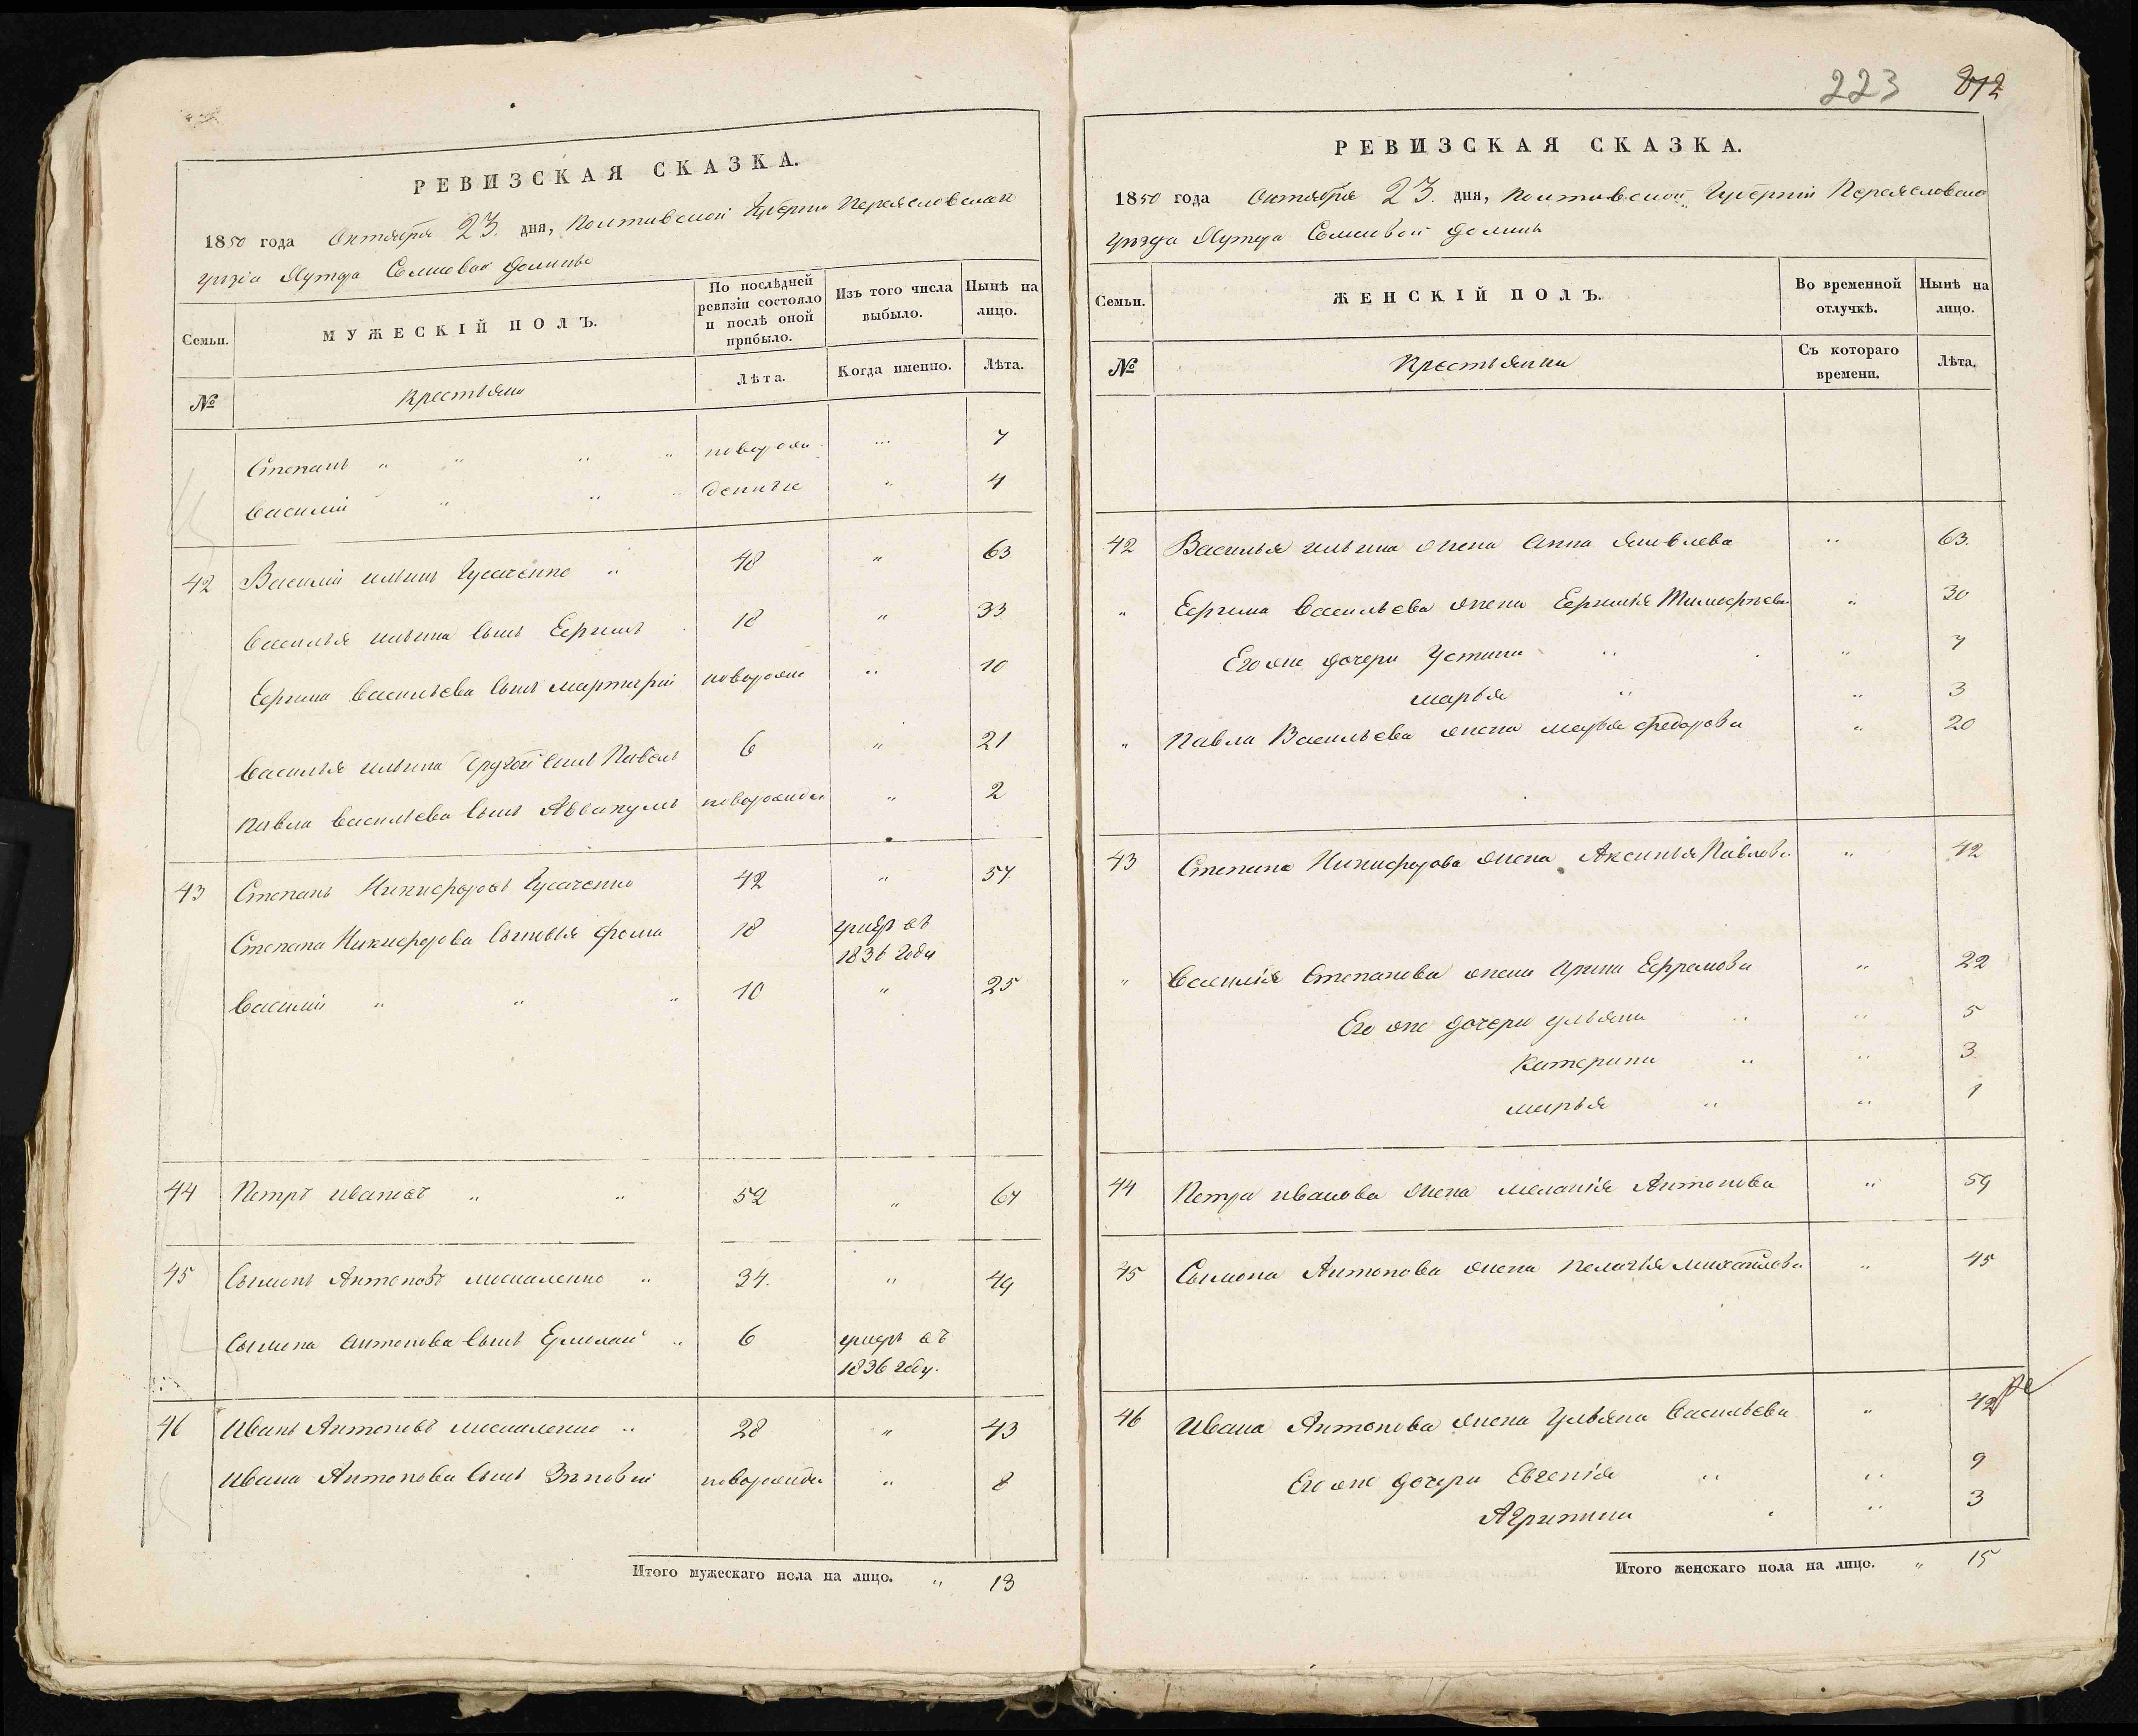 РЕВИЗСКАЯ СКАЗКА.
1850 года Октября 23. дня, Полтавской Губернии Переяславского
уезда Хутора Сомковой Долины
Семьи. МУЖЕСКІЙ ПОЛЪ. По послѣдней ревизіи состояло и послѣ оной прибыло. Изъ того числа выбыло. Нынѣ на лицо.
№ Крестьяне Лѣта. Когда именно. Лѣта.
Степанъ " " " " новорож " 7
Василій " " " денные " 4
42 Василій Ильинъ Гусаченко " 48 " 63
Василья Ильина сынъ Ефимъ 18 " 33
Ефима Васильева сынъ новорож " 10
Василья Ильина другой сынъ Павелъ 6 " 21
Павла Васильева сынъ Аввакумъ " 2
43 Степанъ Никифоровъ Гусаченко 42 " 57
Степана Никифорова сыновья Фома 18 умеръ въ
1836 году
Василій " " " 10 " 25
44 Петръ Ивановъ " " 52 " 67
45 Антоновъ Москаленко " 34. " 49
Антонова сынъ Ермолай " 6 умеръ въ
1836 году.
46 Иванъ Антоновъ Москаленко " 28 " 43
Ивана Антонова сынъ Зѣновій " 8
Итого мужескаго пола на лицо. " 13
223 212
РЕВИЗСКАЯ СКАЗКА.
1850 года Октября 23. дня, Полтавской Губерніи Переяславского
уезда Хутора Сомковой Долины
Семьи. ЖЕНСКІЙ ПОЛЪ. Во временной отлучкѣ. Нынѣ на лицо.
№ Крестьянки Съ котораго времени. Лѣта.
42 Василья Ильина жена Анна Яковлева " 63.
" Ефима Васильева жена " 30
Его же дочери Устина " " 7
Марья " " 3
" Павла Васильева жена Марья Федорова " 20
43 Степана Никифорова жена Аксинья Павлова " 42
" Василія Степанова жена Ирина Ефремова " 22
Его же дочери Ульяна " " 5
Катерина " " 3.
Марья " " 1
44 Петра Иванова жена Меланія Антонова " 59
45 Антонова жена Пелагія Михайлова " 45
46 Ивана Антонова жена Ульяна Васильева " 42
Его же дочери Евгенія " " 9
" 3
Итого женскаго пола на лицо. " 15